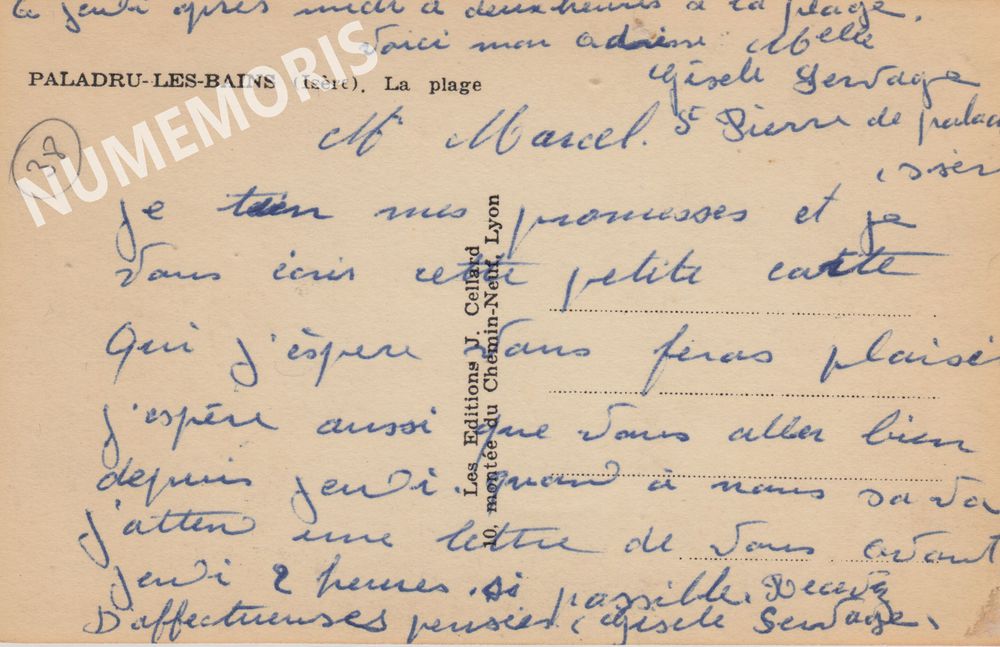 a jeudi après midi a deux heures a la plage.
Voici mon adresse Melle
Gisele Servage
PALADRU-LES-BAINS (Isère). La plage
Mr Marcel. St Pierre de palad
isèr
38
NUMEMORIS
je tien mes promesses et je
vous écris cette petite carte
Qui j'éspere vous feras plaisi
j'espère aussi que vous aller bien
depuis jeudi. quand à nous sa va
j'atten une lettre de vous avant
jeudi 2 heures. si possible. Recevez
D'affectueuses pensées. Gisele Servage.
Les Editions J. Cellard
10, montée du Chemin-Neuf, Lyon